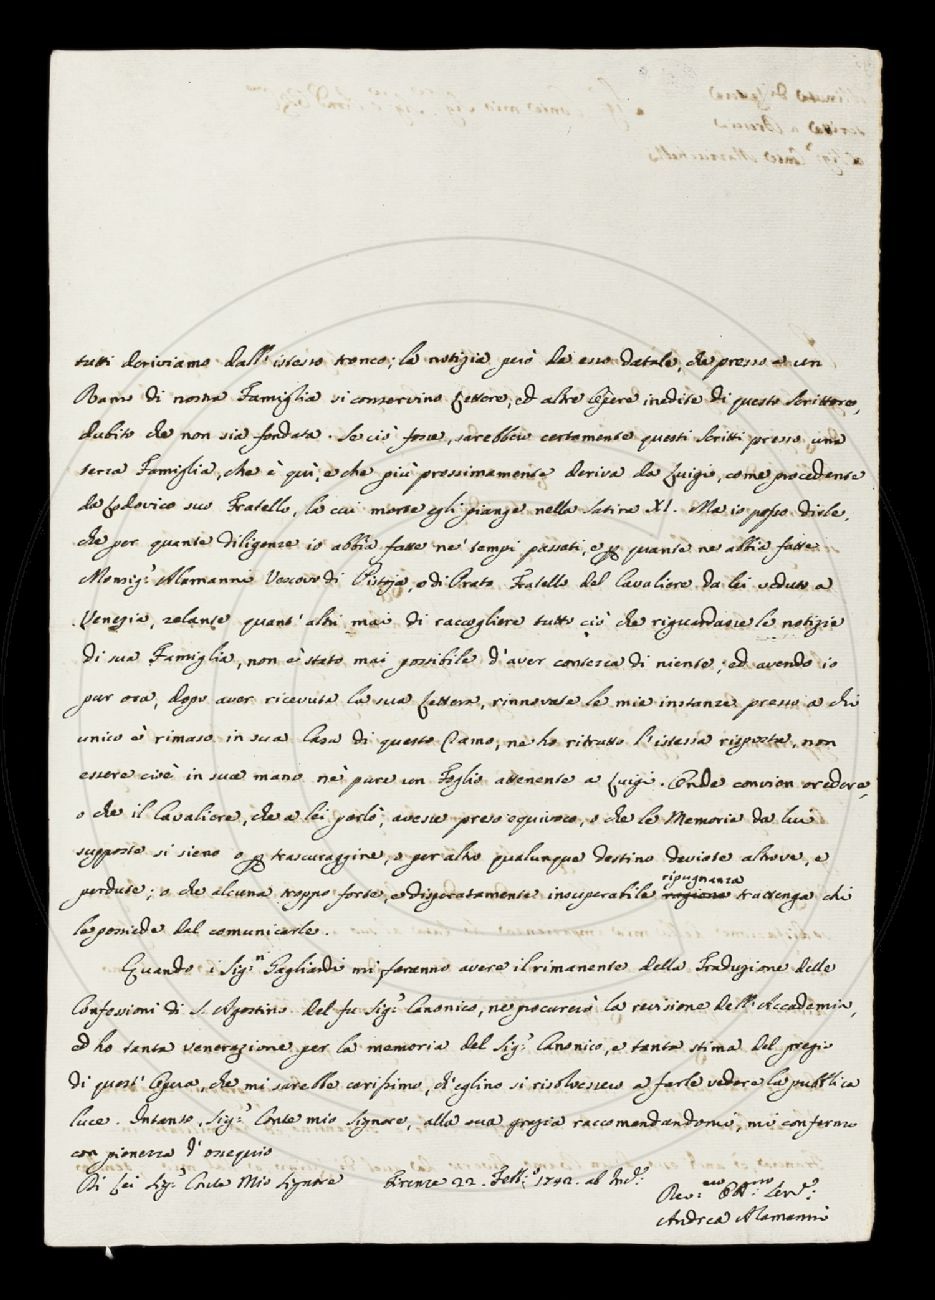 tutti deriviamo dall' istesso tronco; la notizia però da esso datale, che presso a un
Ramo di nostra Famiglia si conservino Lettere, ed altre Opere inedite di questo Scrittore,
dubito che non sia fondata. Se ciò fosse, sarebbero certamente questi Scritti presso una
terza Famiglia, che è quì, e che più prossimamente deriva da Luigi, come procedente
da Lodovico suo Fratello, la cui morte egli piange nella Satira XI. Ma io posso dirle,
che per quante diligenze io abbia fatte ne' tempi passati, e p quante ne abbia fatte
Monsig.r Alamanni Vescovo di Pistoja, e di Prato Fratello del Cavaliere da lei veduto a
Venezia, zelante quant' altri mai di raccogliere tutto ciò che riguardasse le notizie
di sua Famiglia, non è stato mai possibile d' aver contezza di niente; ed avendo io
pur ora, dopo aver ricevuta la sua Lettera, rinnovate le mie instanze presso a chi
unico è rimaso in sua Casa di questo Ramo, ne ho ritratto l' istessa risposta, non
essere cioè in sua mano nè pure un Foglio attenente a Luigi. Onde convien credere,
o che il Cavaliere, che a lei parlò, avesse preso equivoco, o che le Memorie da lui
supposte si sieno o p trascuraggine, o per altro qualunque destino deviate altrove, e
perdute; o che alcuna troppo forte, e disgraziatamente insuperabile ragione ripugnanza trattenga chi
le possiede dal comunicarle.
Quando i Sig.ri Gagliardi mi faranno avere il rimanente della Traduzione delle
Confessioni di S. Agostino del fu Sig.r Canonico, ne procurerò la revisione dell' Accademia,
ed ho tanta venerazione per la memoria del Sig.r Canonico, e tanta stima del pregio
di quest' Opera, che mi sarebbe carissimo, ch' eglino si risolvessero a farle vedere la pubblica
luce. Intanto, Sig.r Conte mio Signore, alla sua grazia raccomandandomi, mi confermo
con pienezza d' ossequio
Di Lei Sig.r Conte Mio Signore Firenze 22. Febb.o 1742. ab Inc.e
Dev.mo Obb.mo Serv.e
Andrea Alamanni